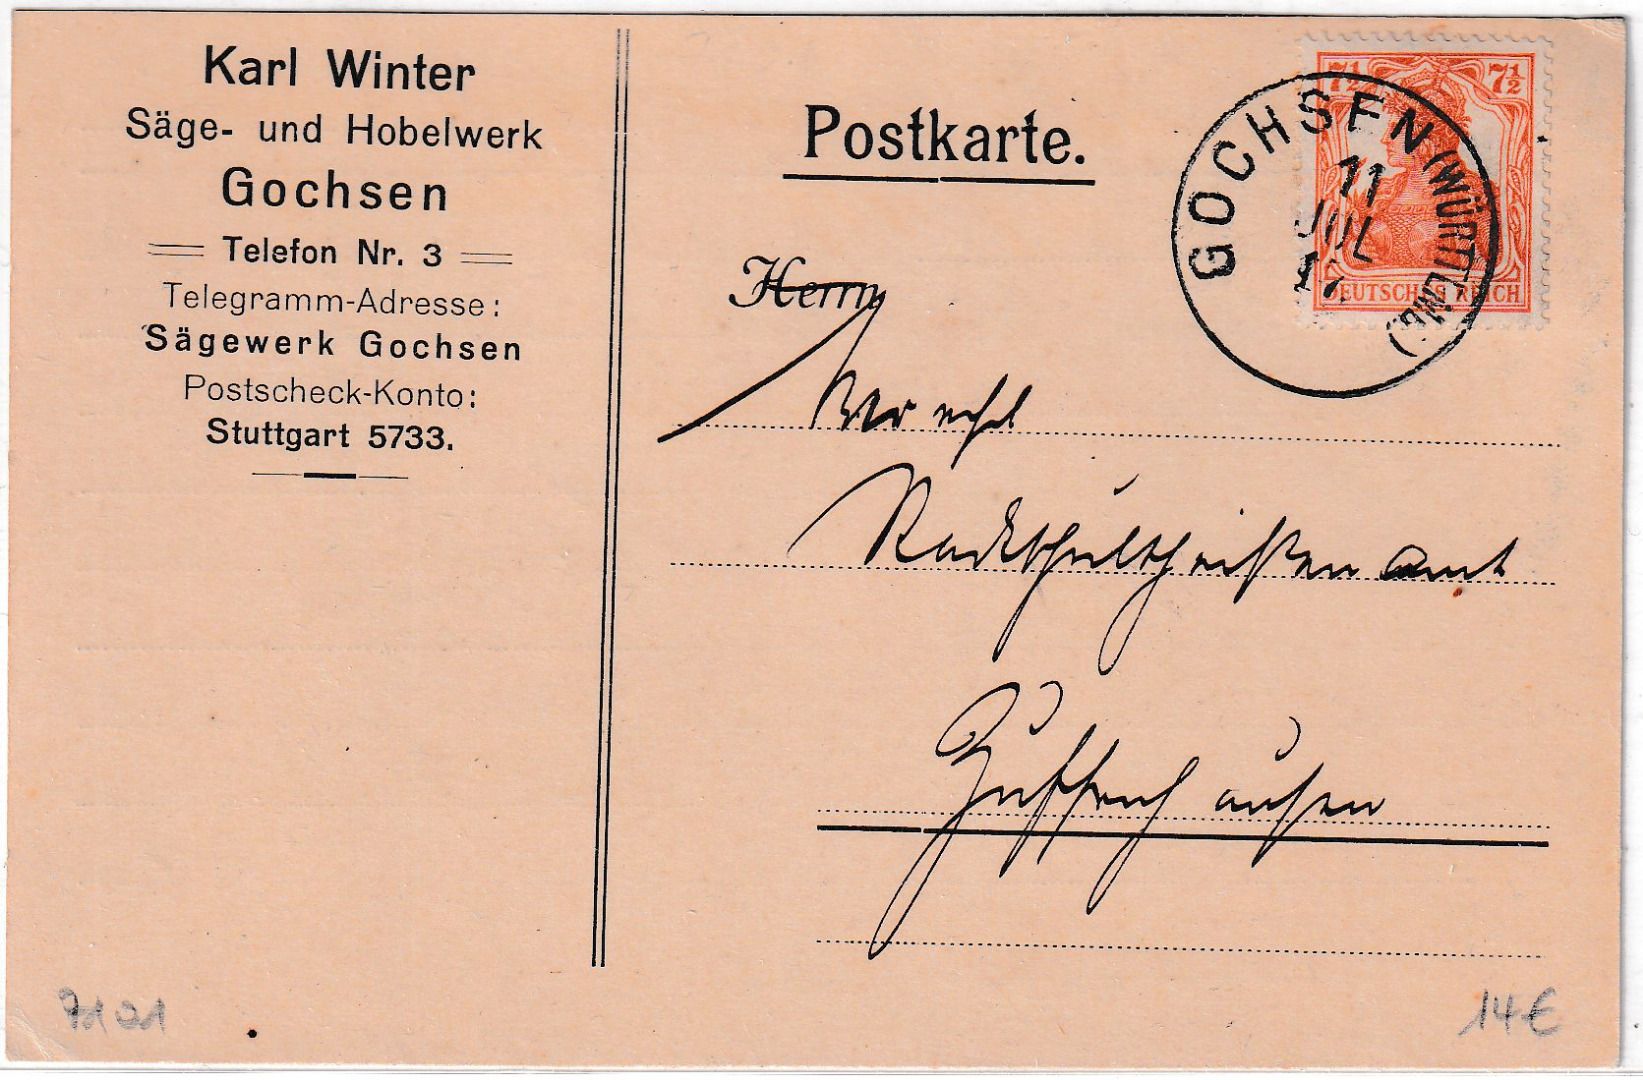 Karl Winter
Säge- und Hobelwerk
Gochsen
Telefon Nr. 3
Telegramm-Adresse:
Sägewerk Gochsen
Postscheck-Konto:
Stuttgart 5733.
Postkarte.
7½ 7½
DEUTSCHES REICH
GOCHSEN (WÜRTTEMB.)
11
JUL
17
Herrn
Stadtschultheißenamt
Zuffenhausen
14€